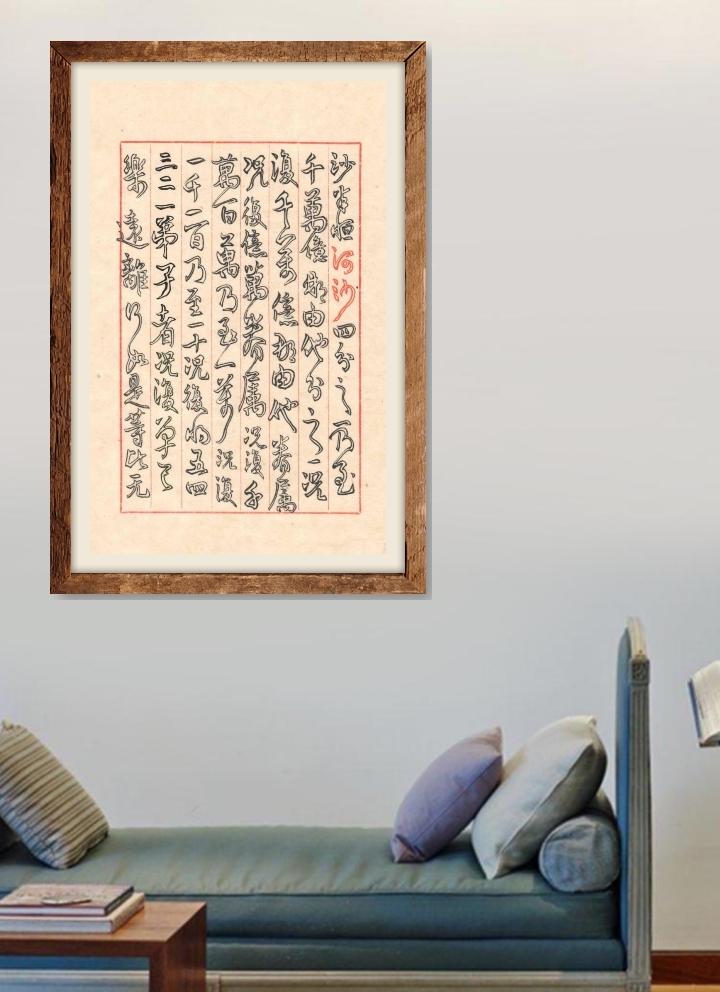 沙半恒河沙四分之一乃至
千萬億那由他分之一況
復千万億那由他眷属
況復億萬眷属況復千
萬百萬乃至一万況復
一千一百乃至一十況復將五四
三二一弟子者況復單己
樂遠離行如是等比无